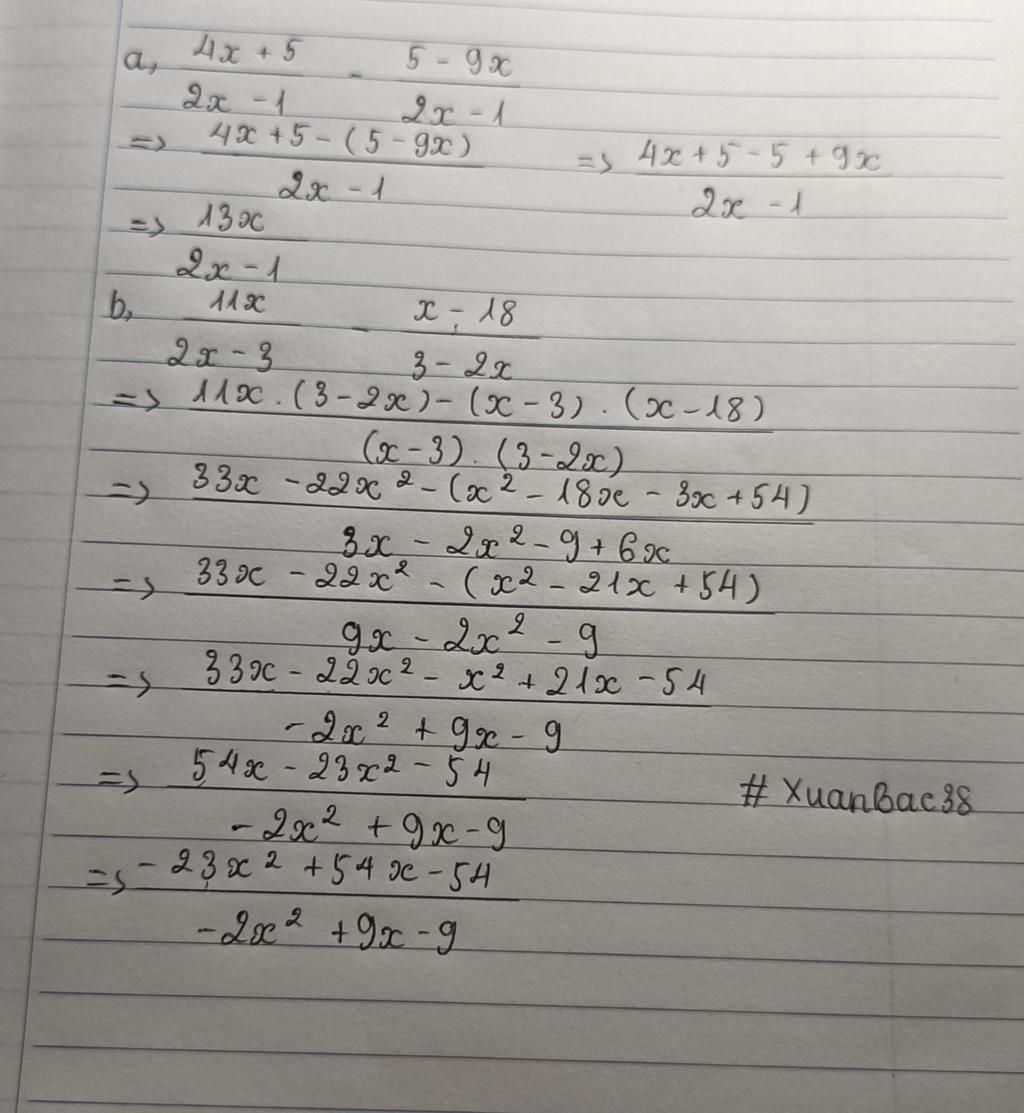 a, (4x + 5)/(2x - 1) - (5 - 9x)/(2x - 1)
=> (4x + 5 - (5 - 9x))/(2x - 1) => (4x + 5 - 5 + 9x)/(2x - 1)
=> 13x/(2x - 1)
b, 11x/(2x - 3) - (x - 18)/(3 - 2x)
=> (11x . (3 - 2x) - (x - 3) . (x - 18))/((x - 3) . (3 - 2x))
=> (33x - 22x² - (x² - 18x - 3x + 54))/(3x - 2x² - 9 + 6x)
=> (33x - 22x² - (x² - 21x + 54))/(9x - 2x² - 9)
=> (33x - 22x² - x² + 21x - 54)/(-2x² + 9x - 9)
=> (54x - 23x² - 54)/(-2x² + 9x - 9)
# XuanBac38
=> (-23x² + 54x - 54)/(-2x² + 9x - 9)